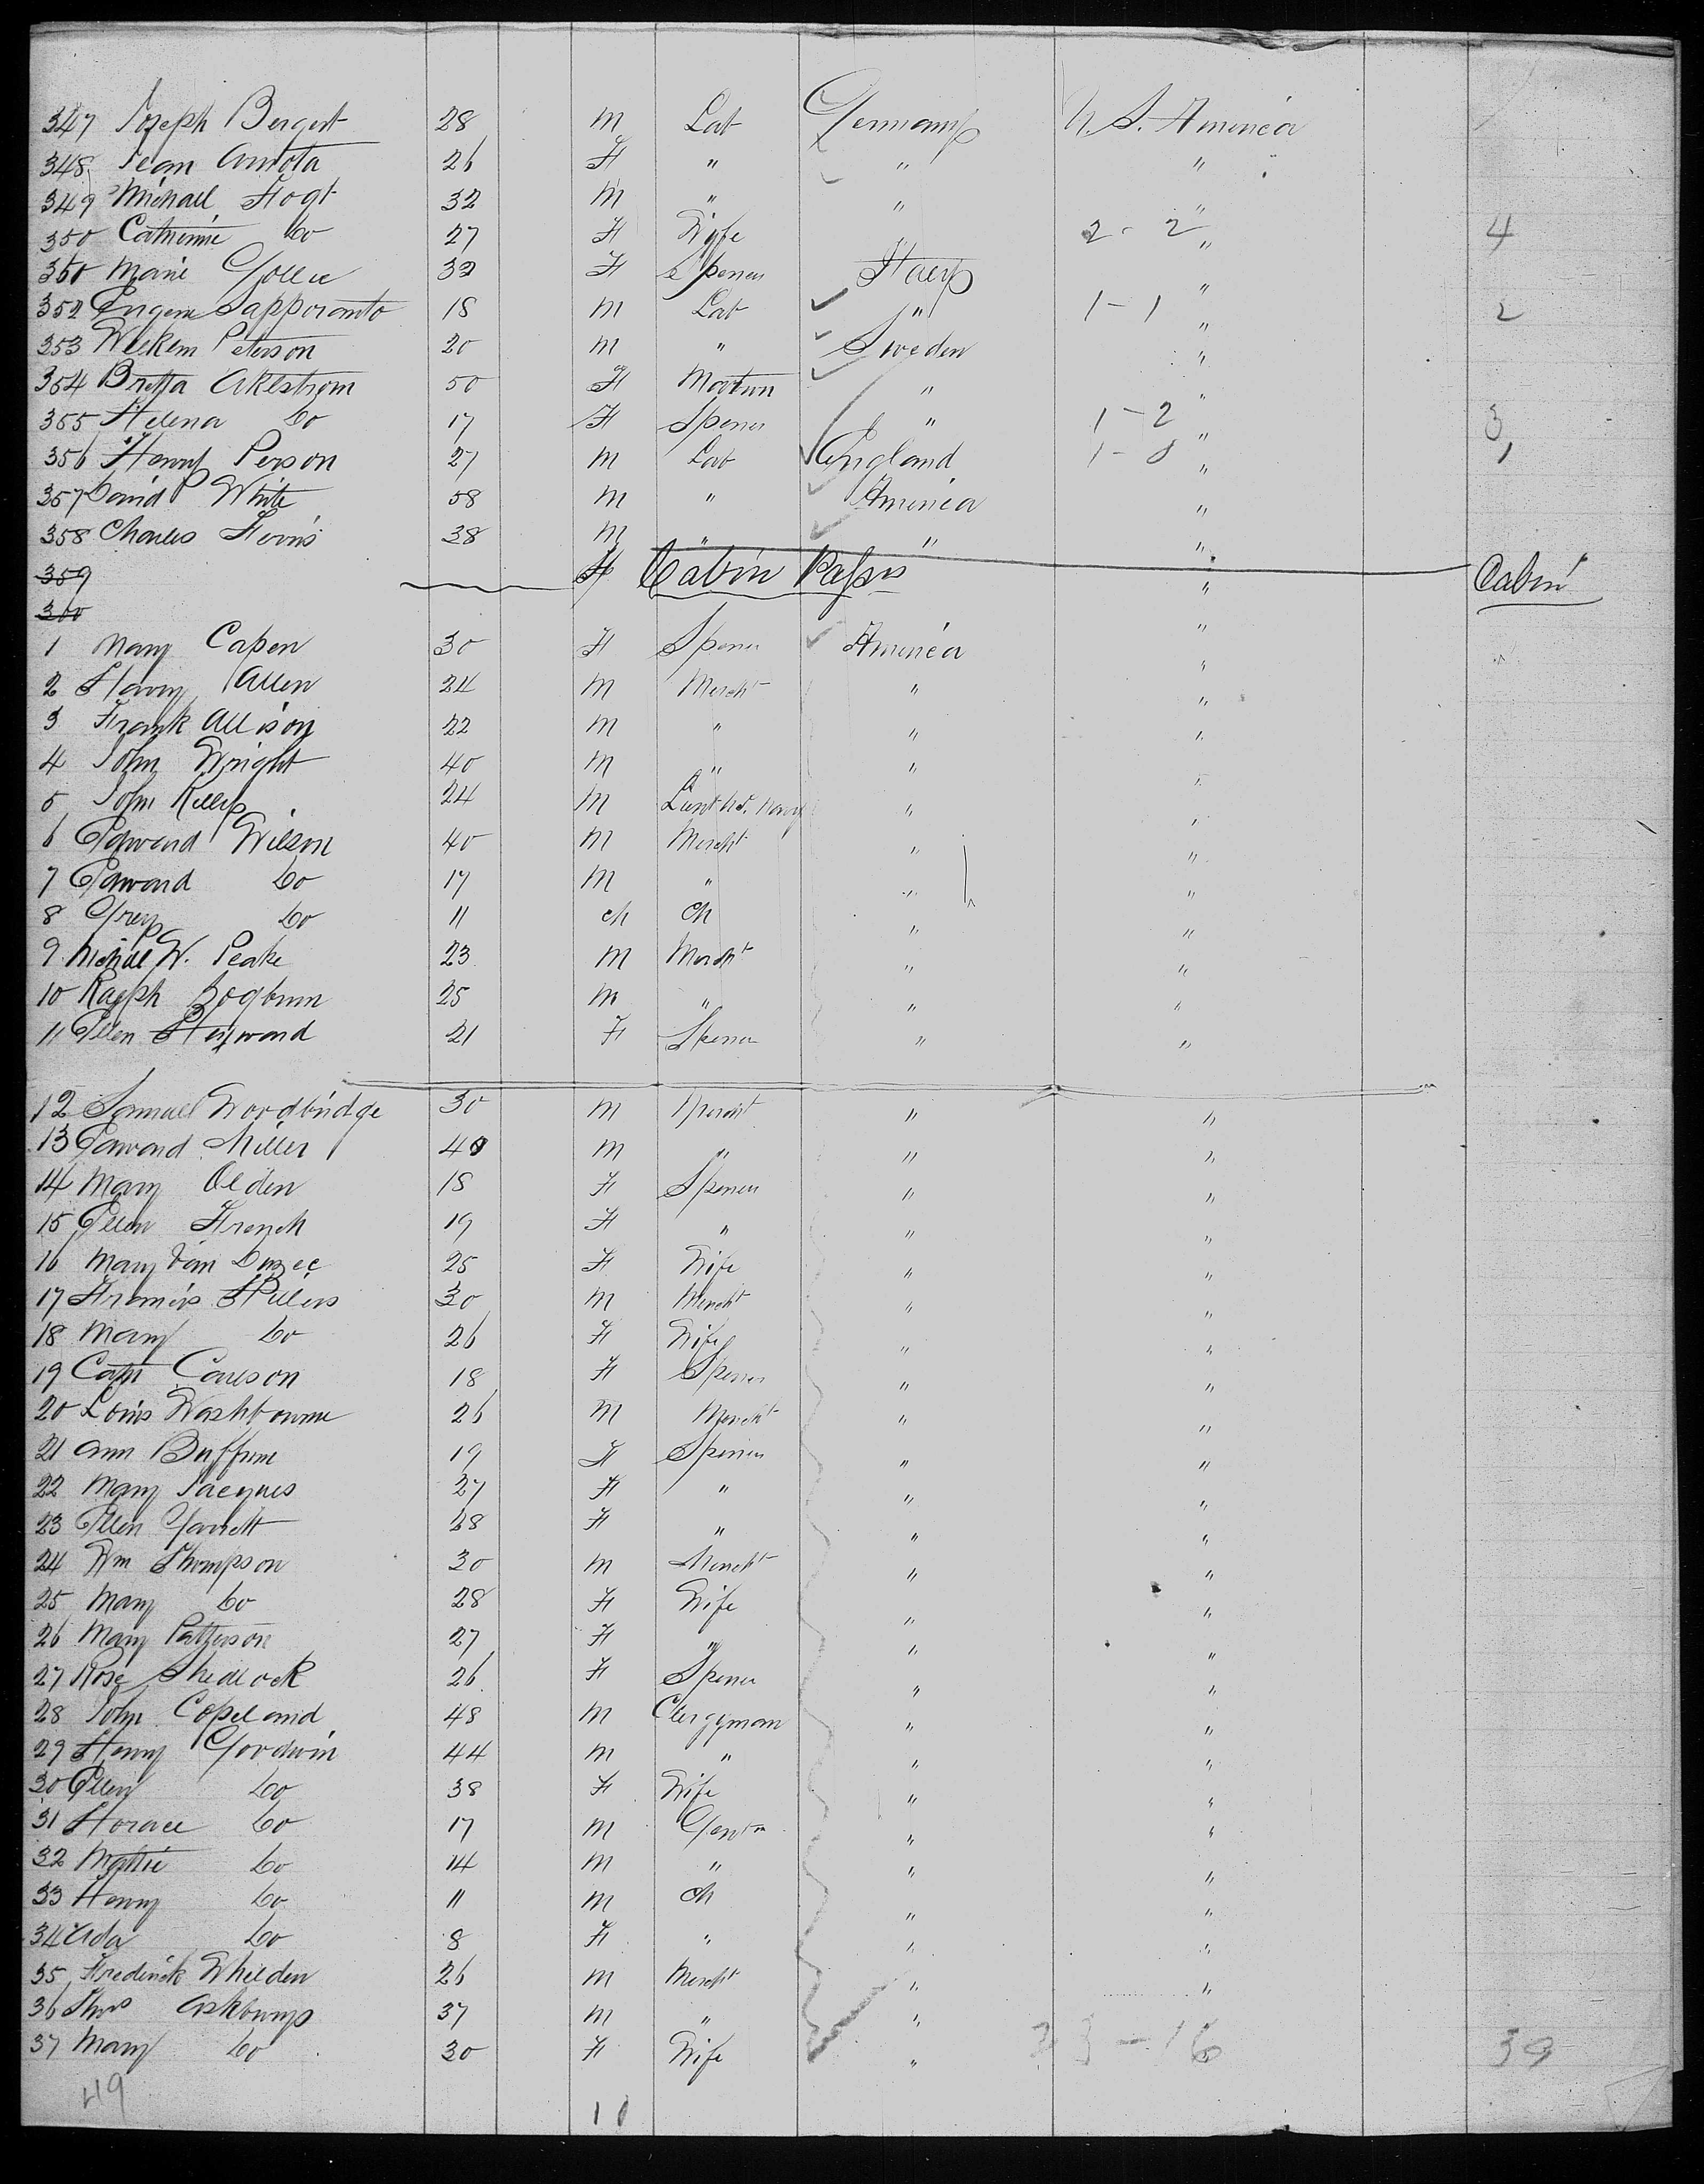 347 Joseph Bergert 28 M Lab Germany U.S. America
348 Jean 26 F " " "
349 Michael Fogt 32 M " " "
350 Catherine Do 27 F Wife 2 - 2 " 4
350 Marie 32 F Spener Italy "
352 Eugene 18 M Lab " 1 - 1 " 2
353 Peterson 20 M " Sweden "
354 Britta Akelstrom 50 F Matron " "
355 Helena Do 17 F Spener " 1 - 2 " 3
356 Henry Person 27 M Lab England 1 - 0 " 1
357 David White 58 M " America "
358 Charles Ferris 38 M " " "
359 F Cabin Passrs " Cabin
360 "
1 Mary Capen 30 F Spener America "
2 Harry Allen 24 M Mercht " "
3 Frank Allison 22 M " " "
4 John Wright 40 M " " "
5 John Kelly 24 M Lieut U.S. Navy " "
6 Edward Wilson 40 M Mercht " "
7 Edward Do 17 M " " "
8 Grey Do 11 ch ch " "
9 W. Peake 23 M Mercht " "
10 Ralph Zogbum 25 M " " "
11 Ellen Hayward 21 F Spener " "
12 Samuel Woodbridge 30 M Mercht " "
13 Edward Miller 40 M " " "
14 Mary Olden 18 F Spener " "
15 Ellen French 19 F " " "
16 Mary Van Duzee 25 F Wife " "
17 Francis 30 M Mercht " "
18 Mary Do 26 F Wife " "
19 Cath Carlson 18 F Spener " "
20 Louis Washbourne 26 M Mercht " "
21 Ann Buffum 19 F Spener " "
22 Mary Jacques 27 F " " "
23 Ellen Garrett 28 F " " "
24 Wm Thompson 30 M Mercht " "
25 Mary Do 28 F Wife " "
26 Mary Patterson 27 F " " "
27 Rose Shedlock 26 F Spener " "
28 John Copeland 48 M Clergyman " "
29 Henry Goodwin 44 M " " "
30 Ellen Do 38 F Wife " "
31 Horace Do 17 M Gentn " "
32 Mattie Do 14 M " " "
33 Henry Do 11 M ch " "
34 Ada Do 8 F " " "
35 Frederick Whelden 26 M Mercht " "
36 Thos Ashburny 37 M " " "
37 Mary Do 30 F Wife " 23 - 16 39
49 10